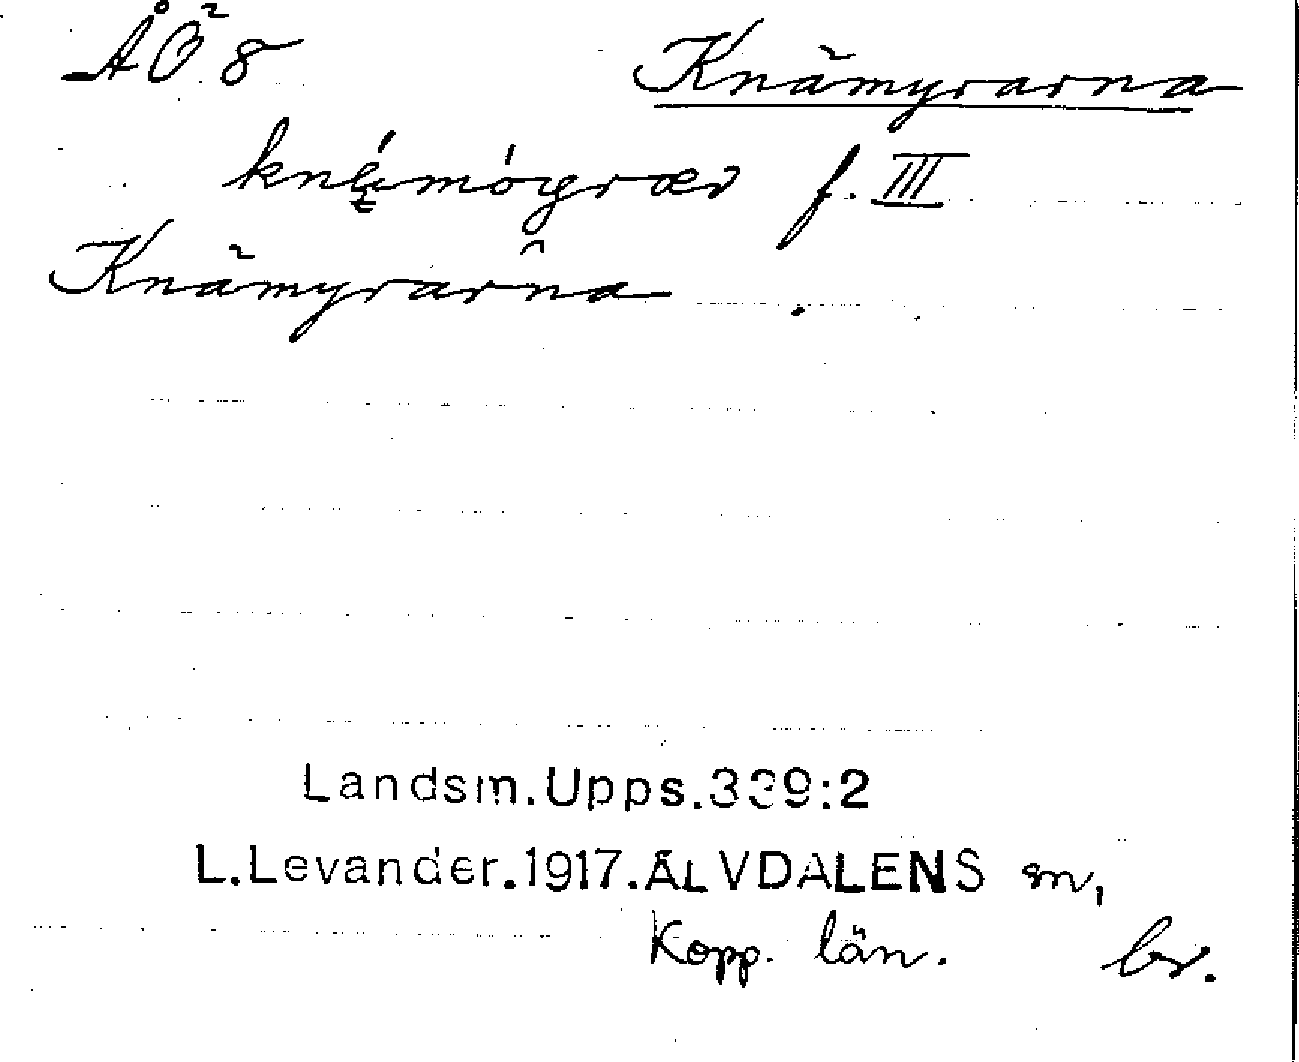 ÅÖ 8 Knämyrarna
f. III
Knämyrarna
Landsm.Upps.339:2
L.Levander.1917.ÄLVDALENS sn,
Kopp. län. br.